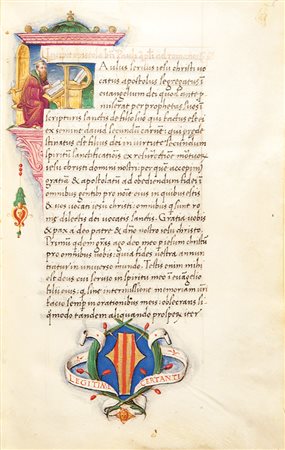 Aulus servus iesu christi vo
catus apostolus segregatus in
evangelium dei quod ante p̄mi
serat per prophetas suos i
scripturis sanctis de filio suo qui factus est ei
ex semine david secundū carnē: qui prede
stinatus est filius dei in virtute secundum
spiritū sanctificationis ex resurrectiōe mortuoꝝ
iesu christi domini nostri per quē accepimꝰ
gratiā & apostolatū ad obediendum fidei ī
omnibus gentibꝰ pro nomine eius in quibus estis
& vos vocati iesu christi: omnibus q̄ sunt ro
mę dilectis dei vocatis sanctis. Gratia vobis
& pax a deo patre & dn̄o nostro iesu christo.
Primū adem grās ago deo meo p̄ iesum christū
pro omnibus vobis: quia fides vestra annun
ciatur in universo mundo. Testis enim mihi
est deus cui servio in spiritu meo ī evangelio
filii eius: q̄ sine intermissione memoriam vr̄i
facio semp̄ in orationibus meis: obsecrans si
quomodo tandem aliquando prosperū iter
LEGITIME CERTANTI